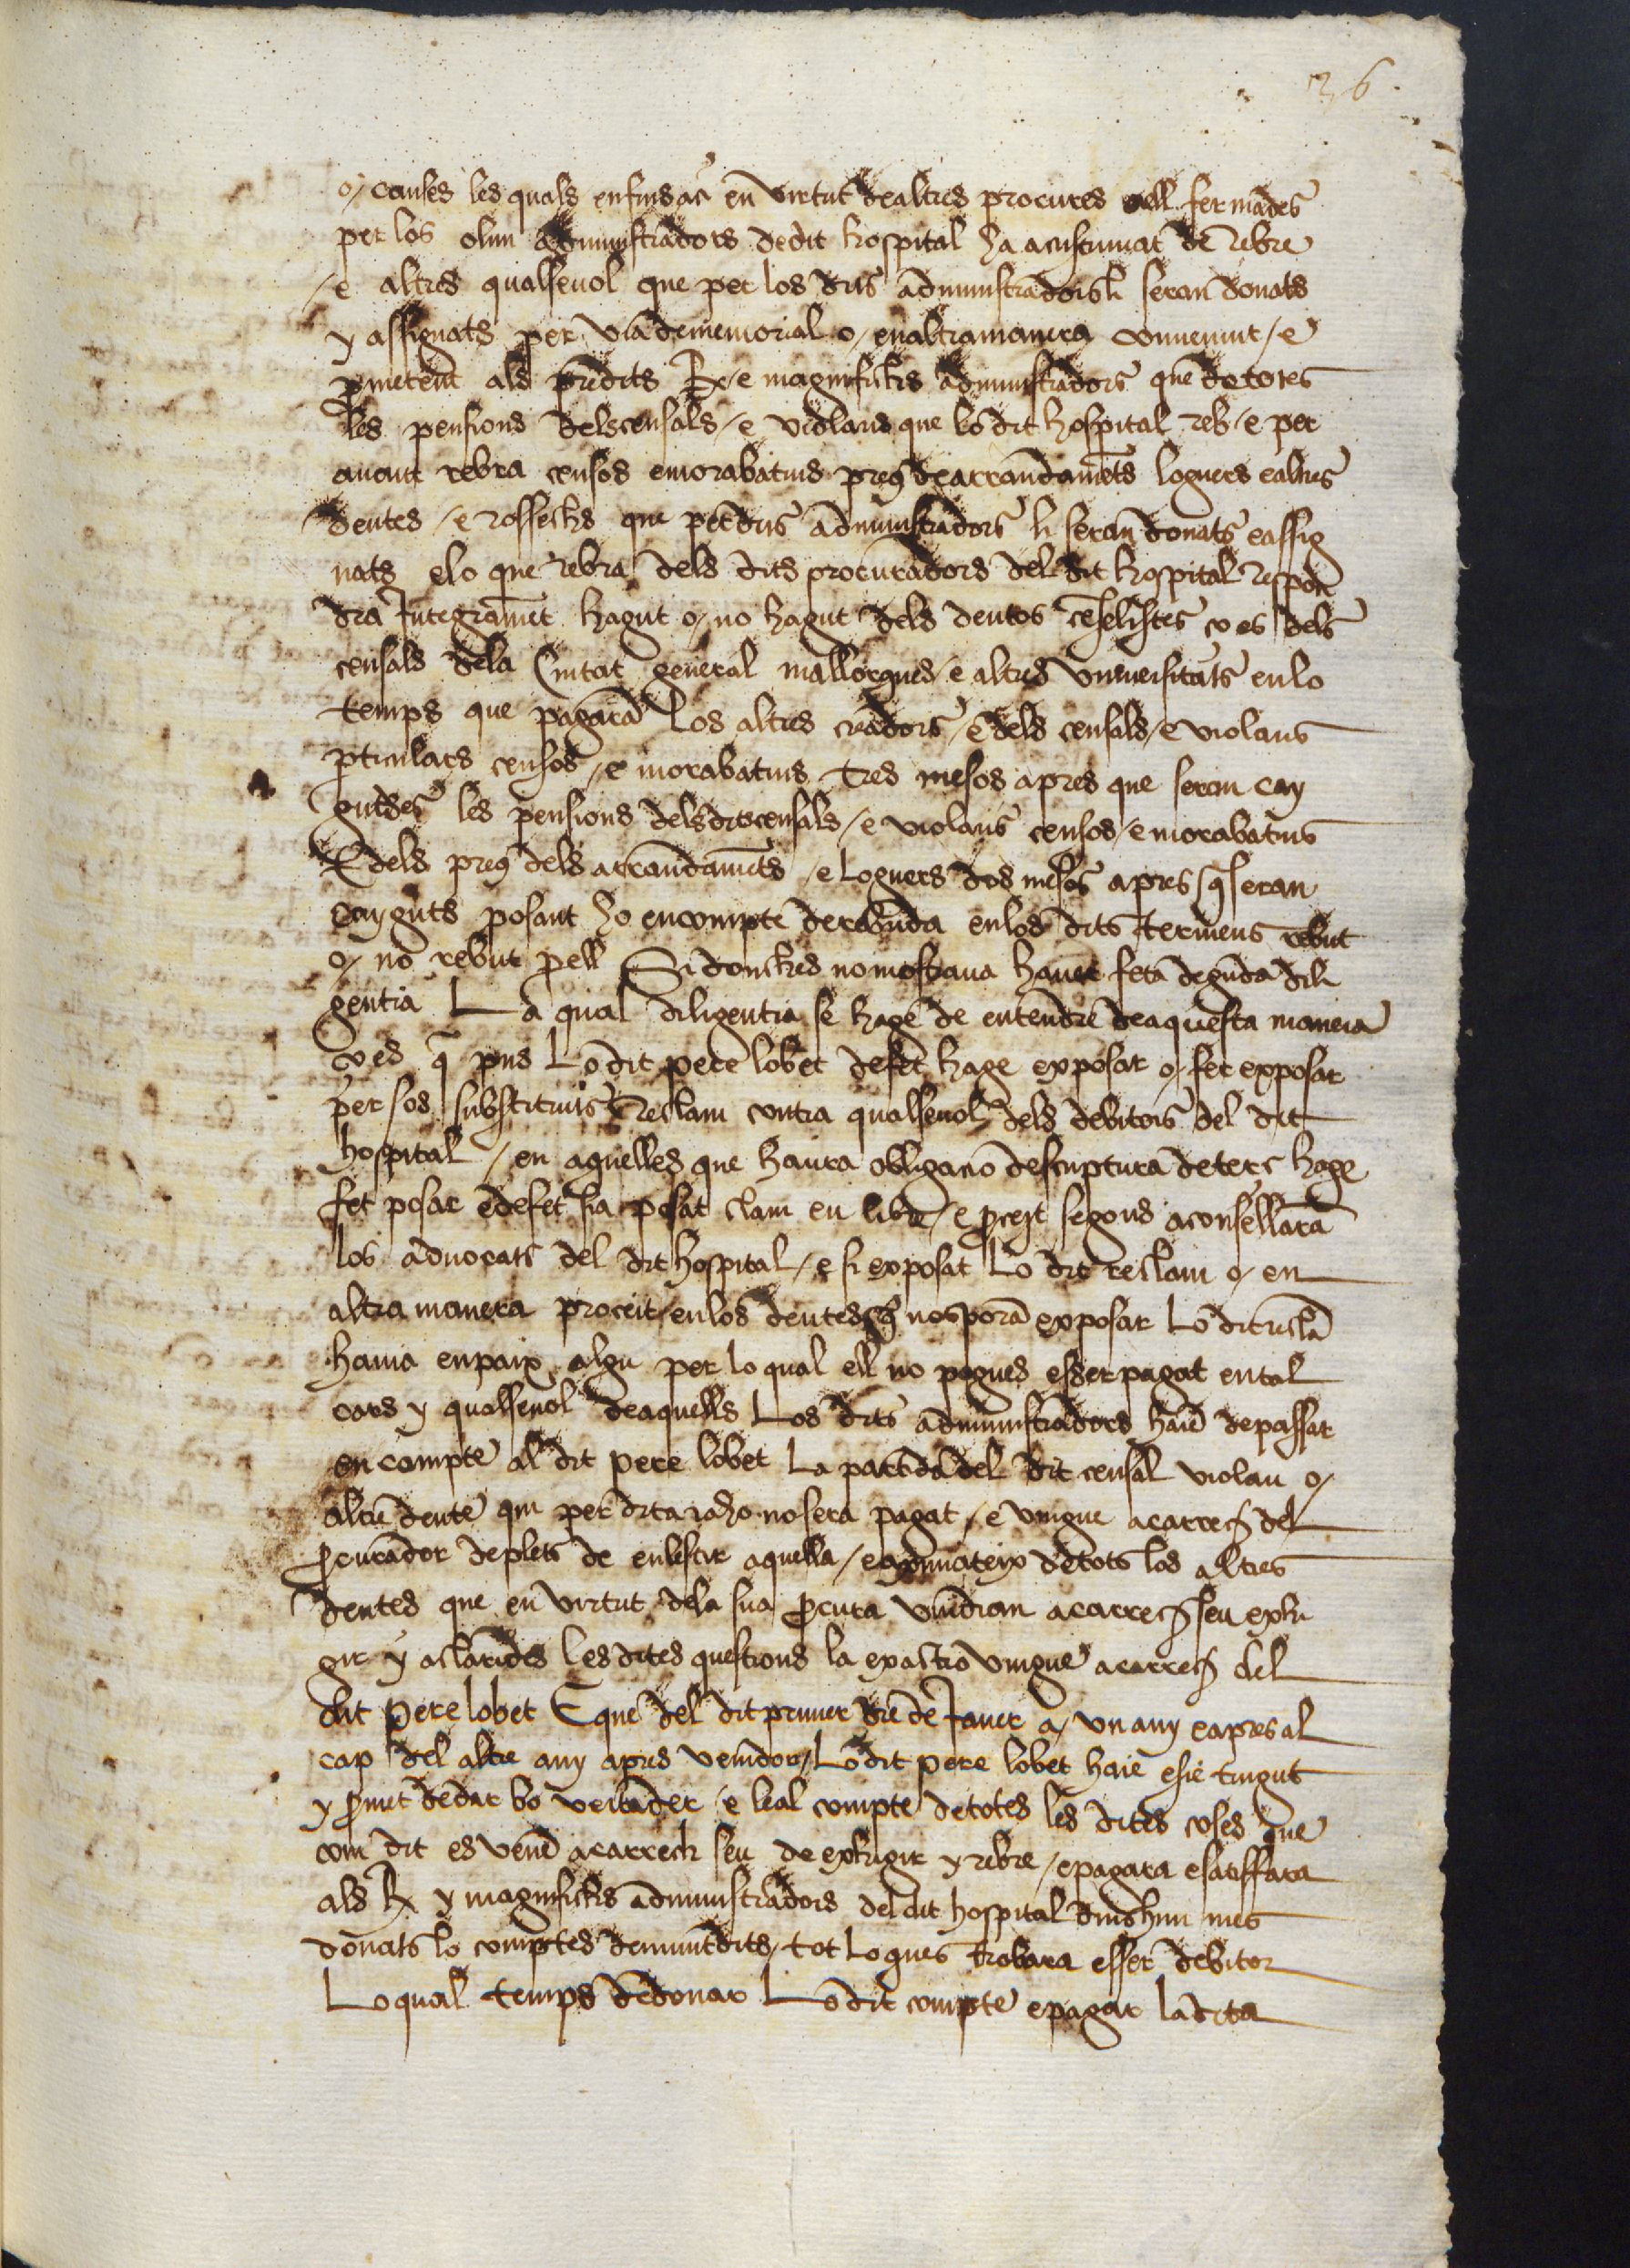 36
o/ causes les quals enfins aci en virtut dealtres procures a ell fermades
per los olim administradors dedit hospital ha acustumat de rebre
/ e altres qualseuol que per los dits administradors li seran donats
y assignats per via de memorial o/ enaltramanera conuenint / e
prometent als predits R. e magnifichs administradors que de totes
les pensions delscensals / e violaris que lo dit hospital reb / e per
auant rebra censos emorabatins preus dearrandaments loguers ealtres
deutes / e rossechs que perdits administradors li seran donats eassig
nats elo que rebra dels dits procuradors del dit hospital respon
dra Integrament hagut o/ no hagut dels deutos censelistes ço es dels
censals dela Ciutat general mallorques / e altres vniuersitats enlo
temps que pagara los altres creadors / e dels censals / e violaris
particulars censos / e morabatins tres mesos apres que seran cay
gudes les pensions delsditscensals / e violaris censos / e morabatins
E dels preus dels arrandaments / e loguers dos mesos apres que seran
cayguts posant ho encompte derebuda enlos dits termens rebut
o/ no rebut per ell Si donchs nomostraua hauer feta deguda dili
gentia La qual diligentia se hage de entendre deaquesta manera
ço es que pus Lo dit pere lobet defet hage exposat o/ fet exposar
per sos substituits reclam contra qualseuol dels debitors del dit
hospital / en aquelles que haura obligacio descriptura deters hage
fet posar edefet sia posat clam en libre / e proceit segons aconsellara
los aduocats del dit hospital / e si exposat Lo dit reclam o/ en
altra manera proceit / enlos deutes que nosporan exposar Lo ditreclam
hauia enpaix algu per lo qual ell no pogues esser pagat ental
cars y qualseuol deaquells Los dits administradors haien depassar
en compte al dit pere lobet La partida del dit censal violari o/
altre deute qui per dita raho nosera pagat / e vingue acarrech del
procurador deplets de enlestir aquella / eaximateix detots los altres
deutes que en virtut dela sua procura vindran acarrech seu exhi
gir y aclarides les dites questions la exactio vingue acarrech del
dit Pere lobet E que del dit primer die de Janer a/ vn any eapres al
cap del altre any apres venidor / Lo dit pere lobet haie esie tingut
y promet dedar bo verdader / e leal compte detotes les dites coses que
com dit es venen acarrech seu de exhigir y rebre / epagara esatisffara
als R. y magnifichs administradors del dit hospital dins hun mes
donats lo comptes demuntdits / tot loques trobara esser debitor
Lo qual temps dedonar Lo dit compte epagar ladita